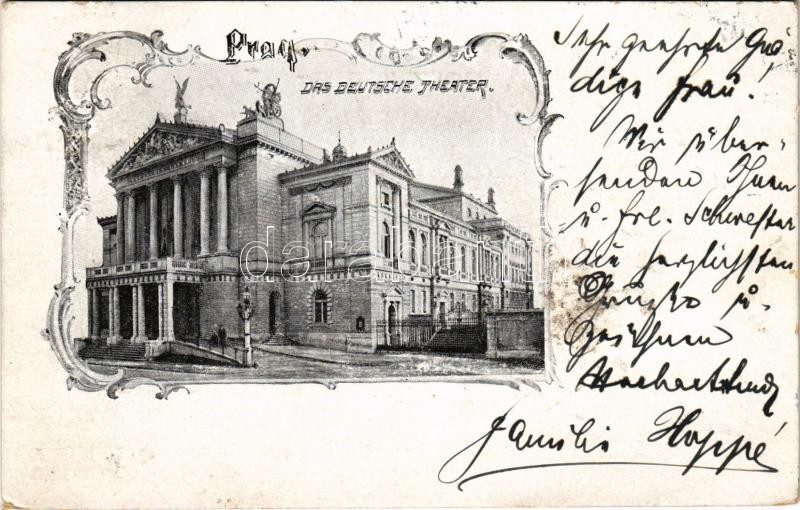 Prag.
DAS DEUTSCHE THEATER.
Sehr geehrte Gnä-
dige Frau.
Wir über-
senden Ihnen
u. Frl. Schwester
die herzlichsten
Grüße u.
zeichnen
Hochachtend
Familie Hoppé
darabanth